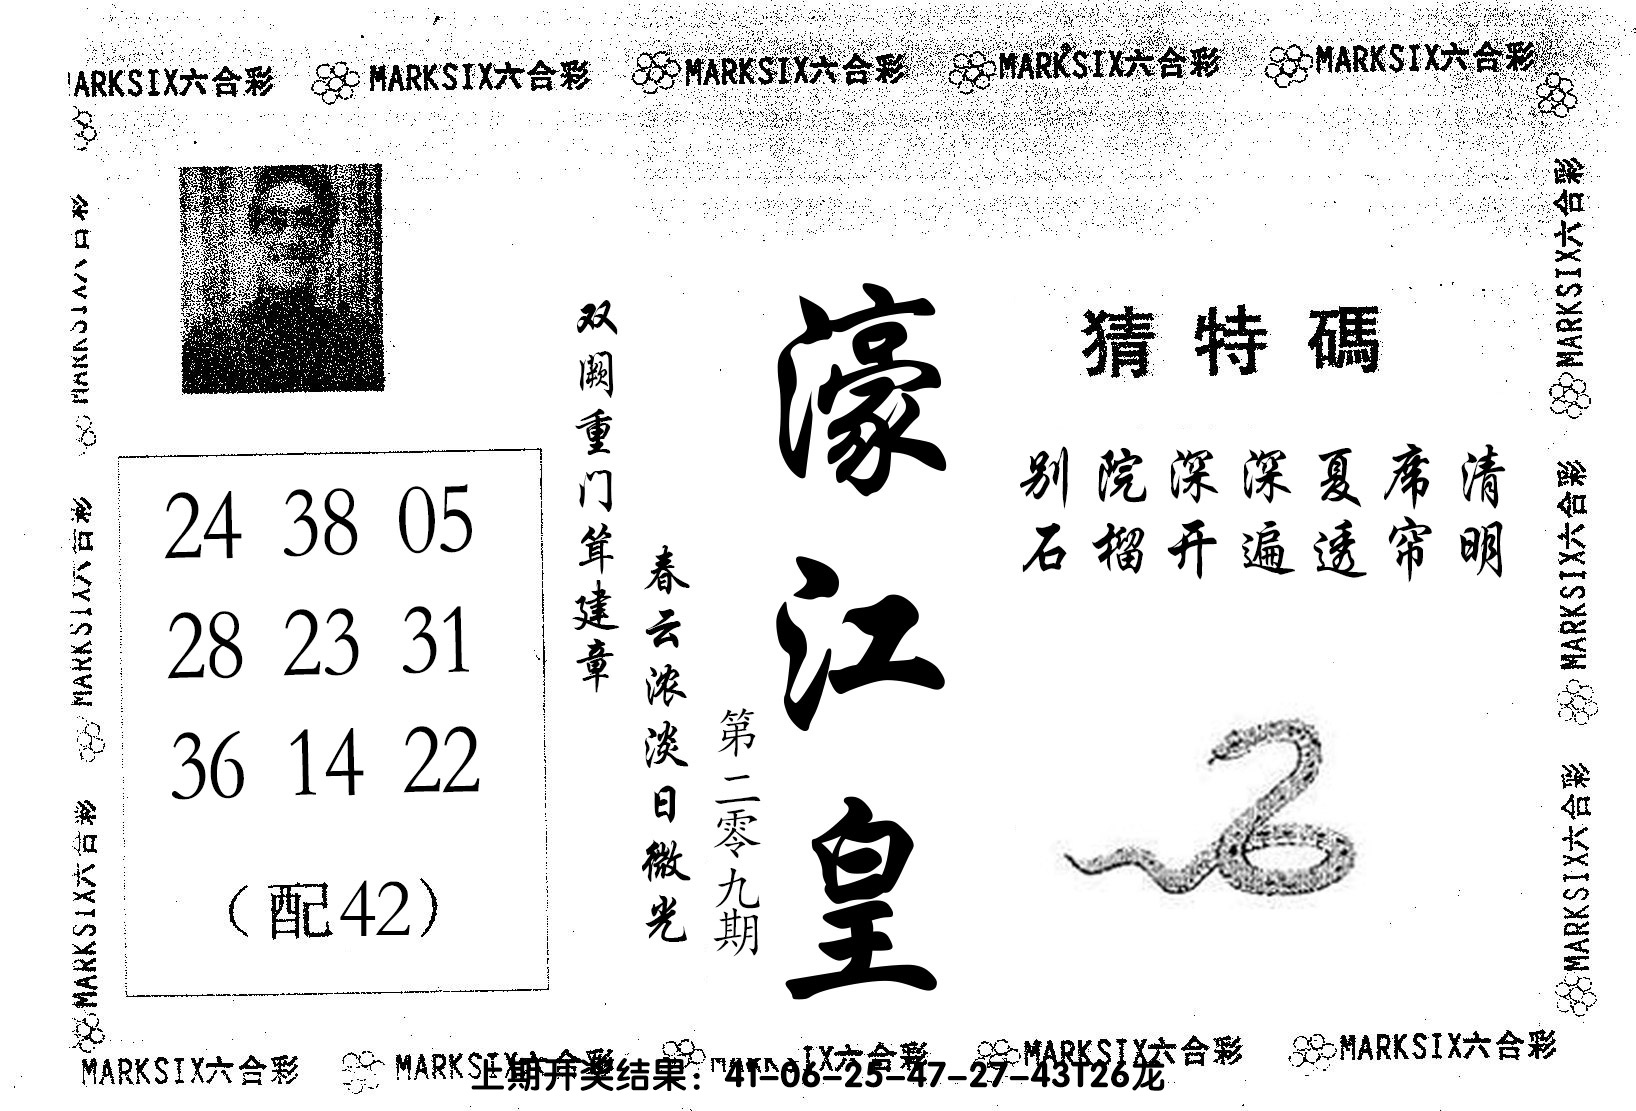 MARKSIX六合彩 MARKSIX六合彩 MARKSIX六合彩 MARKSIX六合彩
猜特碼
别院深深夏席清
石榴开遍透帘明
濠江皇
第二零九期
春云浓淡日微光
双阙重门耸建章
24 38 05
28 23 31
36 14 22
（配42）
MARKSIX六合彩
MARKSIX六合彩
MARKSIX六合彩
MARKSIX六合彩
MARKSIX六合彩
MARKSIX六合彩 MARKSIX六合彩 MARKSIX六合彩
上期开奖结果：41-06-25-47-27-43T26龙